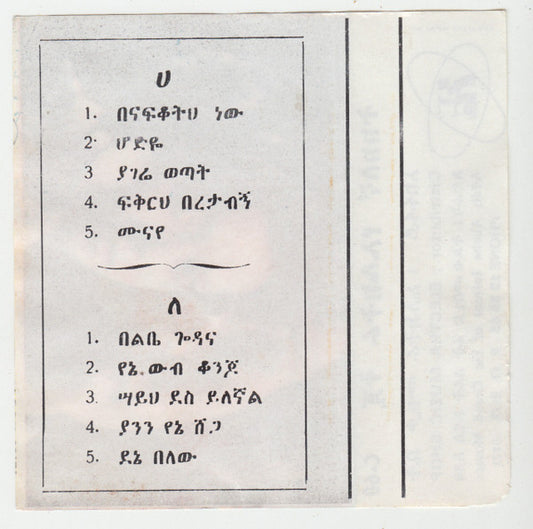 ሀ
1. በናፍቆትህ ነው
2. ሆድዬ
3 ያገሬ ወጣት
4. ፍቅርህ በረታብኝ
5. ሙናየ
ለ
1. በልቤ ጐዳና
2. የኔ.ውብ ቆንጆ
3. ሣይህ ደስ ይለኛል
4. ያንን የኔ ሸጋ
5. ደኔ በለው